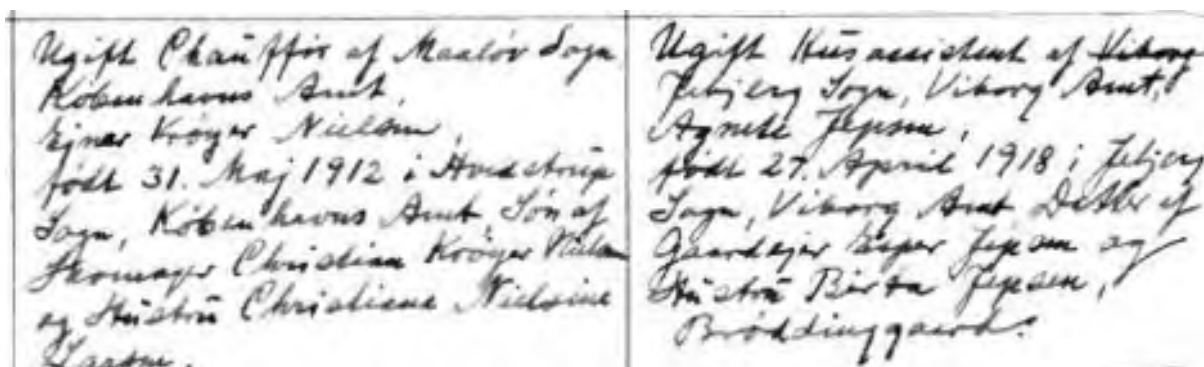 Ugift Chauffør af Maaløv Sogn
Københavns Amt,
Ejner Krøyer Nielsen,
født 31. Maj 1912 i Hvedstrup
Sogn, Københavns Amt Søn af
Skomager Christian Krøyer Nielsen
og Hustru Christiane Nielsine
Larsen.
Ugift Husassistent af Viborg
Jebjerg Sogn, Viborg Amt,
Agnete Jepsen,
født 27. April 1918 i Jebjerg
Sogn, Viborg Amt Datter af
Gaardejer Esper Jepsen og
Hustru Birta Jepsen,
Brøddinggaard.